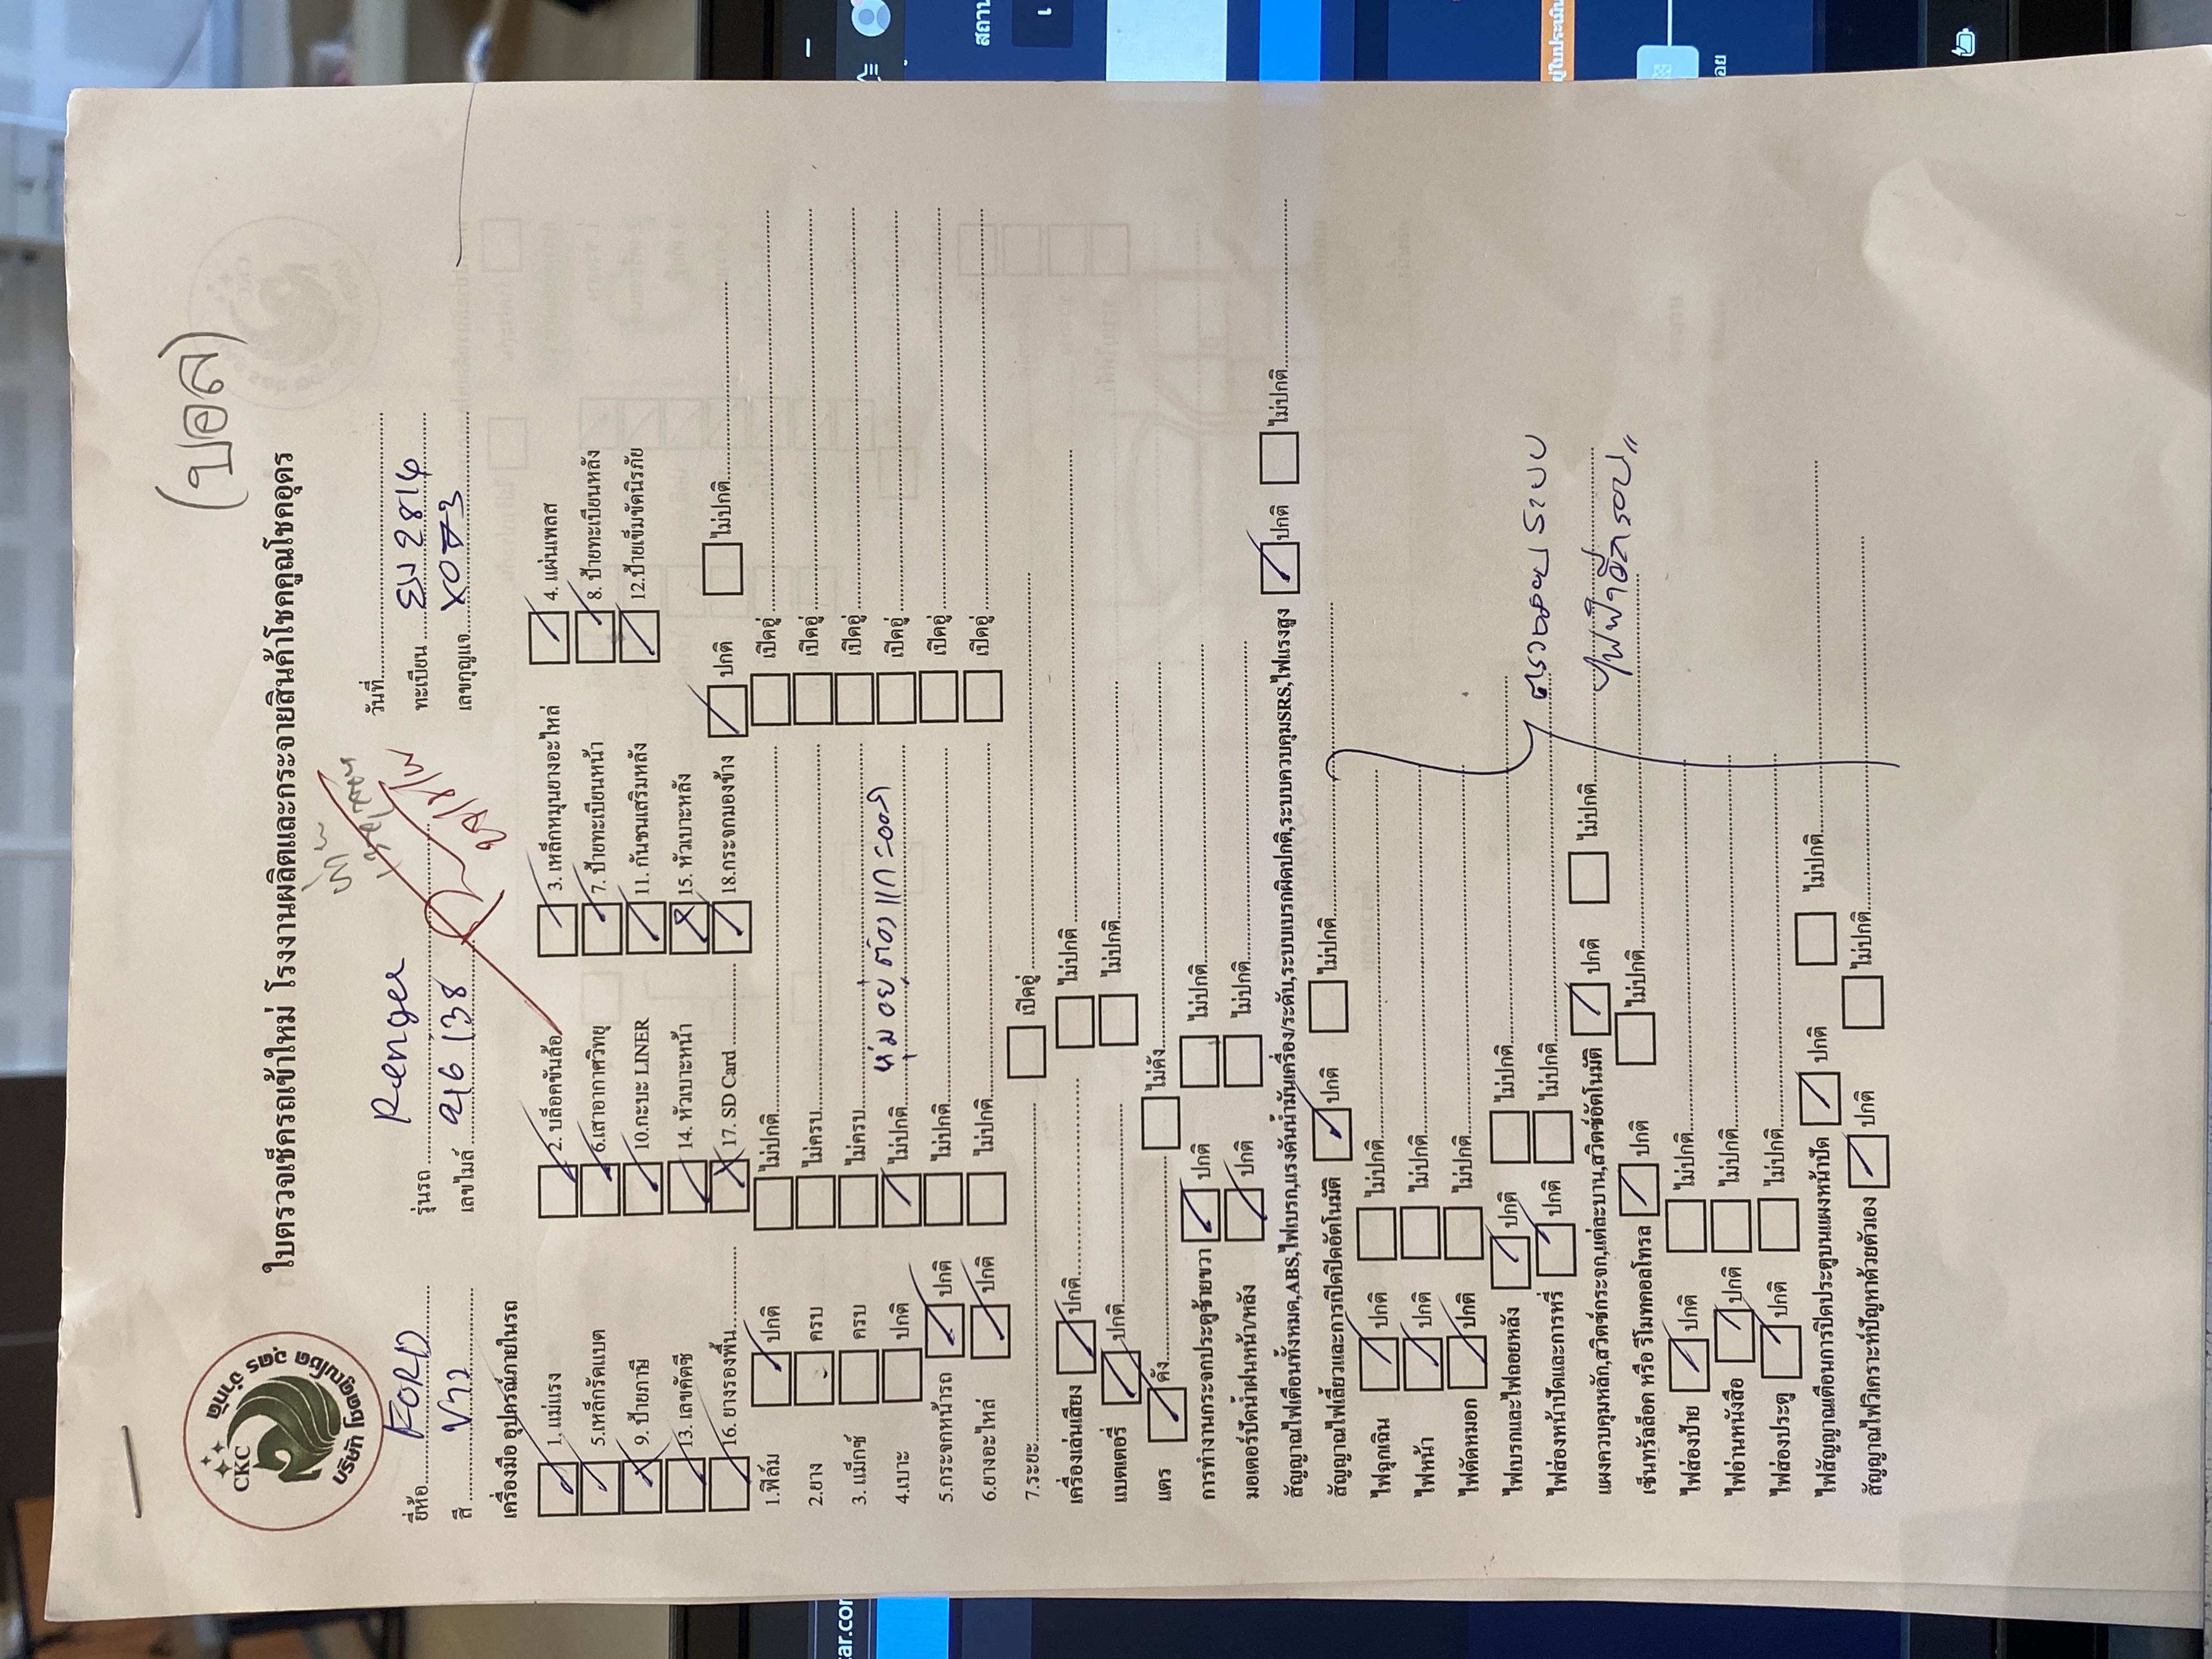 (บอล)
CKC
บริษัท โชคคูณโชค อุดร จำกัด
ใบตรวจเช็ครถเข้าใหม่ โรงงานผลิตและกระจายสินค้าโชคคูณโชคอุดร
ยี่ห้อ FORD รุ่นรถ Renger วันที่
สี ขาว เลขไมล์ ทะเบียน 2814
เลขกุญแจ
เครื่องมือ อุปกรณ์ภายในรถ
1. แม่แรง 2. บล็อคขันล้อ 3. เหล็กหมุนยางอะไหล่ 4. แผ่นเพลส
5.เหล็กรัดแบต 6.เสาอากาศวิทยุ 7. ป้ายทะเบียนหน้า 8. ป้ายทะเบียนหลัง
9. ป้ายภาษี 10.กะบะ LINER 11. กันชนเสริมหลัง 12.ป้ายเข็มขัดนิรภัย
13. เลขคัตซี 14. หัวเบาะหน้า 15. หัวเบาะหลัง
16. ยางรองพื้น 17. SD Card 18.กระจกมองข้าง ปกติ ไม่ปกติ
1.ฟิล์ม ปกติ ไม่ปกติ เปิดอู่
2.ยาง ครบ ไม่ครบ เปิดอู่
3. แม็กซ์ ครบ ไม่ครบ เปิดอู่
4.เบาะ ปกติ ไม่ปกติ เปิดอู่
5.กระจกหน้ารถ ปกติ ไม่ปกติ เปิดอู่
6.ยางอะไหล่ ปกติ ไม่ปกติ เปิดอู่
7.ระยะ เปิดอู่
เครื่องเล่นเสียง ปกติ ไม่ปกติ
แบตเตอรี่ ปกติ ไม่ปกติ
แตร ดัง ไม่ดัง
การทำงานกระจกประตูซ้ายขวา ปกติ ไม่ปกติ
มอเตอร์ปัดน้ำฝนหน้า/หลัง ปกติ ไม่ปกติ
สัญญาณไฟเตือนทั้งหมด,ABS,ไฟเบรก,แรงดันน้ำมันเครื่อง/ระดับ,ระบบเบรกผิดปกติ,ระบบควบคุมSRS,ไฟแรงสูง ปกติ ไม่ปกติ
สัญญาณไฟเลี้ยวและการเปิดปิดอัตโนมัติ ปกติ ไม่ปกติ
ไฟฉุกเฉิน ปกติ ไม่ปกติ
ไฟหน้า ปกติ ไม่ปกติ
ไฟตัดหมอก ปกติ ไม่ปกติ
ไฟเบรกและไฟถอยหลัง ปกติ ไม่ปกติ
ไฟส่องหน้าปัดและการหรี่ ปกติ ไม่ปกติ ตรวจสอบระบบ
แผงควบคุมหลัก,สวิตช์กระจก,แต่ละบาน,สวิตช์อัตโนมัติ ปกติ ไม่ปกติ
เซ็นทรัลล็อค หรือ รีโมทคอลโทรล ปกติ ไม่ปกติ
ไฟส่องป้าย ปกติ ไม่ปกติ
ไฟอ่านหนังสือ ปกติ ไม่ปกติ
ไฟส่องประตู ปกติ ไม่ปกติ
ไฟสัญญาณเตือนการปิดประตูบนแผงหน้าปัด ปกติ ไม่ปกติ
สัญญาณไฟวิเคราะห์ปัญหาด้วยตัวเอง ปกติ ไม่ปกติ